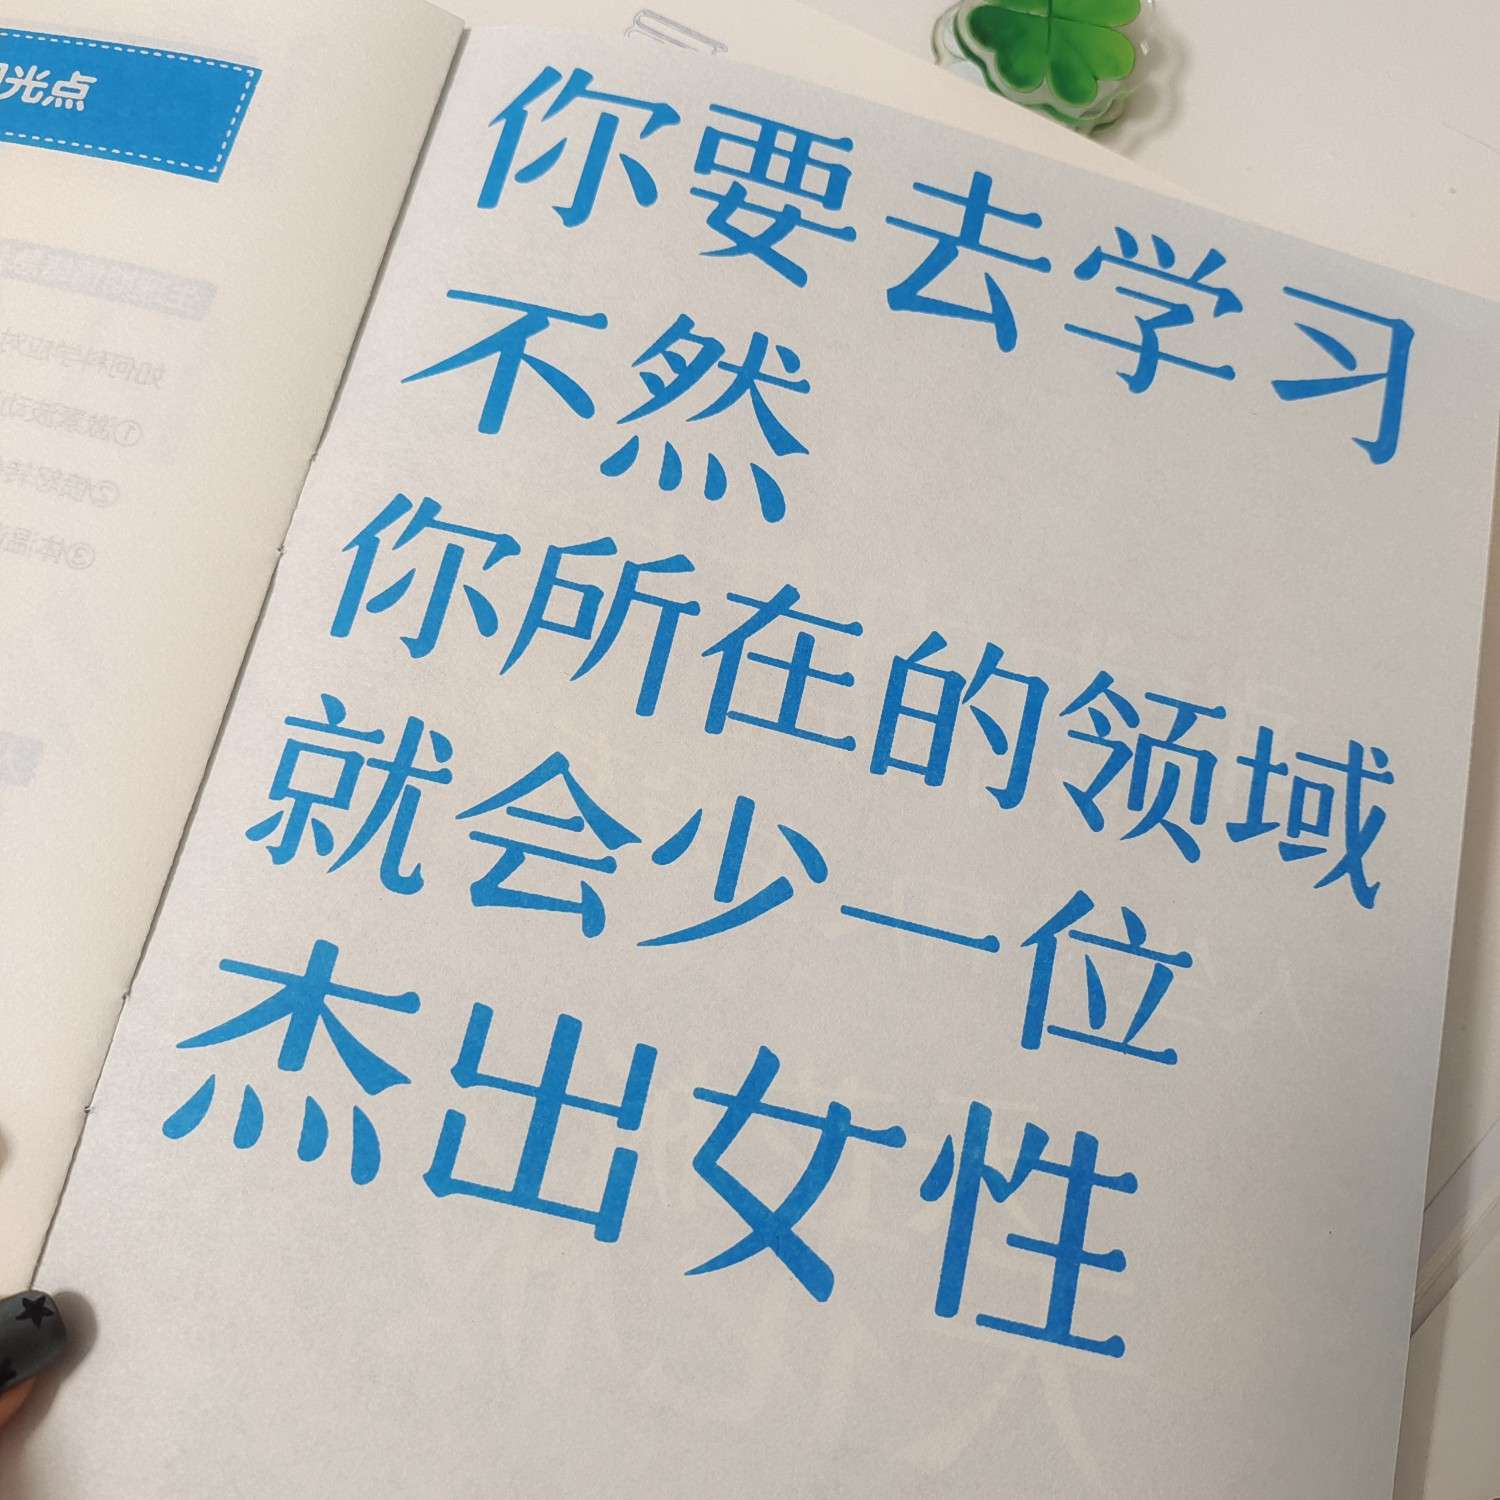 光点
你要去学习
不然
你所在的领域
就会少一位
杰出女性